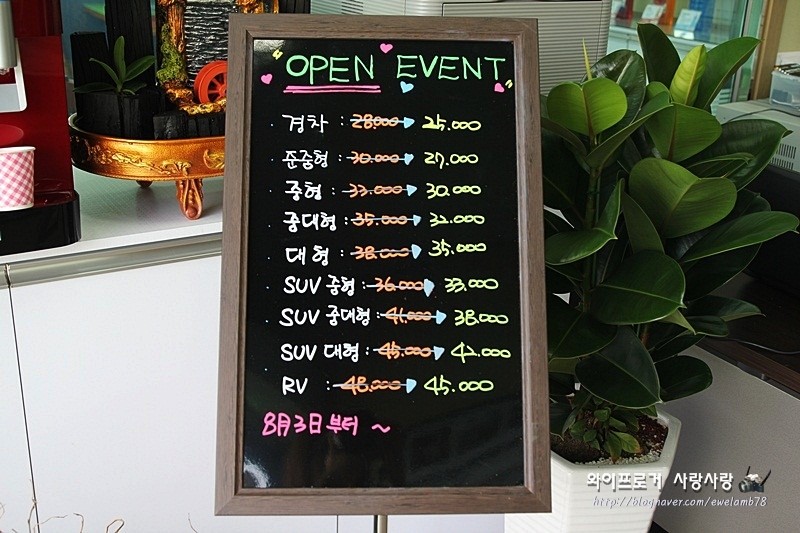 OPEN EVENT
· 경차 : 28.000 → 25.000
· 준중형 : 30.000 → 27.000
· 중형 : 33.000 → 30.000
· 중대형 : 35.000 → 32.000
· 대형 : 38.000 → 35.000
· SUV 중형 : 36.000 → 33.000
· SUV 중대형 : 41.000 → 38.000
· SUV 대형 : 45.000 → 42.000
· RV : 48.000 → 45.000
8月3日부터 ~
와이프로거 사랑사랑
http://blog.naver.com/ewelamb78